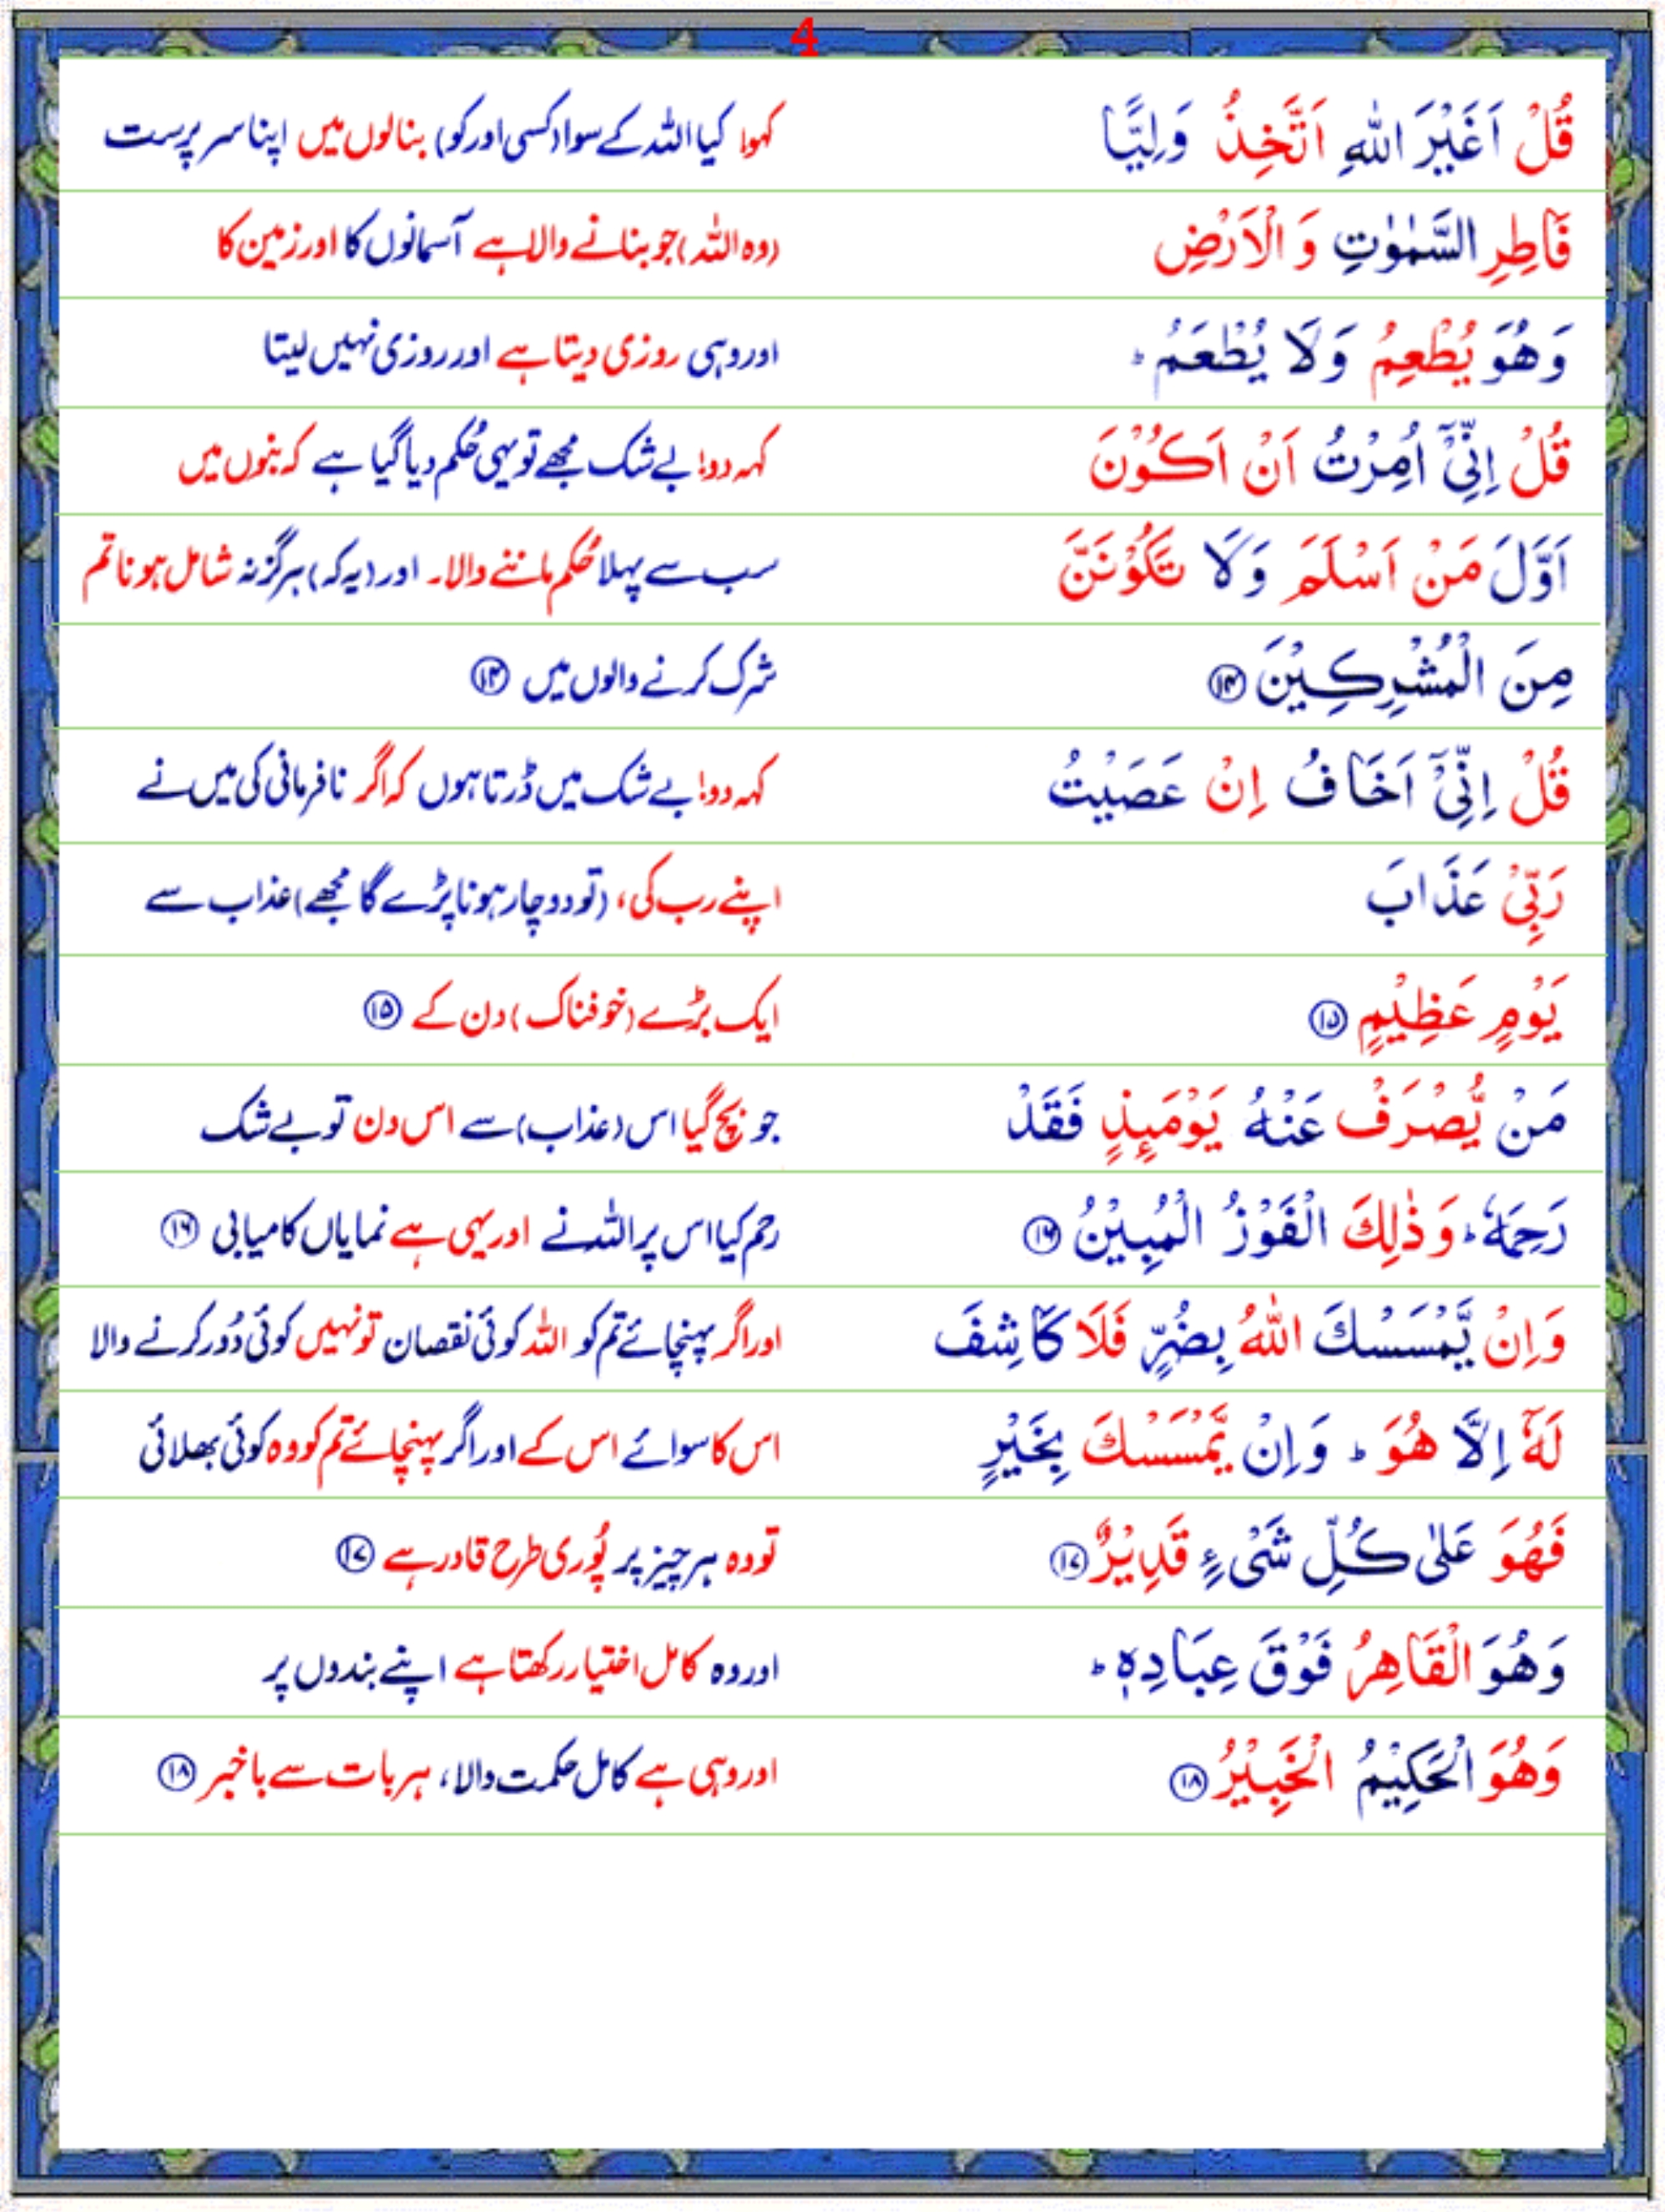 4
قُلْ اَغَيْرَ اللّٰهِ اَتَّخِذُ وَلِيًّا
کہو! کیا اللہ کے سوا (کسی اور کو) بنالوں میں اپنا سر پرست
فَاطِرِ السَّمٰوٰتِ وَ الْاَرْضِ
(وہ اللہ) جو بنانے والا ہے آسمانوں کا اور زمین کا
وَهُوَ يُطْعِمُ وَلَا يُطْعَمُ ؕ
اور وہی روزی دیتا ہے اور روزی نہیں لیتا
قُلْ اِنِّيْۤ اُمِرْتُ اَنْ اَكُوْنَ
کہہ دو! بے شک مجھے تو یہی حُکم دیا گیا ہے کہ بنوں میں
اَوَّلَ مَنْ اَسْلَمَ وَلَا تَكُوْنَنَّ
سب سے پہلا حُکم ماننے والا۔ اور (یہ کہ) ہرگز نہ شامل ہونا تم
مِنَ الْمُشْرِكِيْنَ ﴿۱۴﴾
شرک کرنے والوں میں ﴿۱۴﴾
قُلْ اِنِّيْۤ اَخَافُ اِنْ عَصَيْتُ
کہہ دو! بے شک میں ڈرتا ہوں کہ اگر نافرمانی کی میں نے
رَبِّيْ عَذَابَ
اپنے رب کی، (تو دوچار ہونا پڑے گا مجھے) عذاب سے
يَوْمٍ عَظِيْمٍ ﴿۱۵﴾
ایک بڑے (خوفناک) دن کے ﴿۱۵﴾
مَنْ يُّصْرَفْ عَنْهُ يَوْمَىِٕذٍ فَقَدْ
جو بچ گیا اس (عذاب) سے اس دن تو بے شک
رَحِمَهٗ ؕ وَذٰلِكَ الْفَوْزُ الْمُبِيْنُ ﴿۱۶﴾
رحم کیا اس پر اللہ نے اور یہی ہے نمایاں کامیابی ﴿۱۶﴾
وَاِنْ يَّمْسَسْكَ اللّٰهُ بِضُرٍّ فَلَا كَاشِفَ
اور اگر پہنچائے تم کو اللہ کوئی نقصان تو نہیں کوئی دُور کرنے والا
لَهٗۤ اِلَّا هُوَ ؕ وَاِنْ يَّمْسَسْكَ بِخَيْرٍ
اس کا سوائے اس کے اور اگر پہنچائے تم کو وہ کوئی بھلائی
فَهُوَ عَلٰى كُلِّ شَىْءٍ قَدِيْرٌ ﴿۱۷﴾
تو وہ ہر چیز پر پُوری طرح قادر ہے ﴿۱۷﴾
وَهُوَ الْقَاهِرُ فَوْقَ عِبَادِهٖ ؕ
اور وہ کامل اختیار رکھتا ہے اپنے بندوں پر
وَهُوَ الْحَكِيْمُ الْخَبِيْرُ ﴿۱۸﴾
اور وہی ہے کامل حکمت والا، ہر بات سے باخبر ﴿۱۸﴾